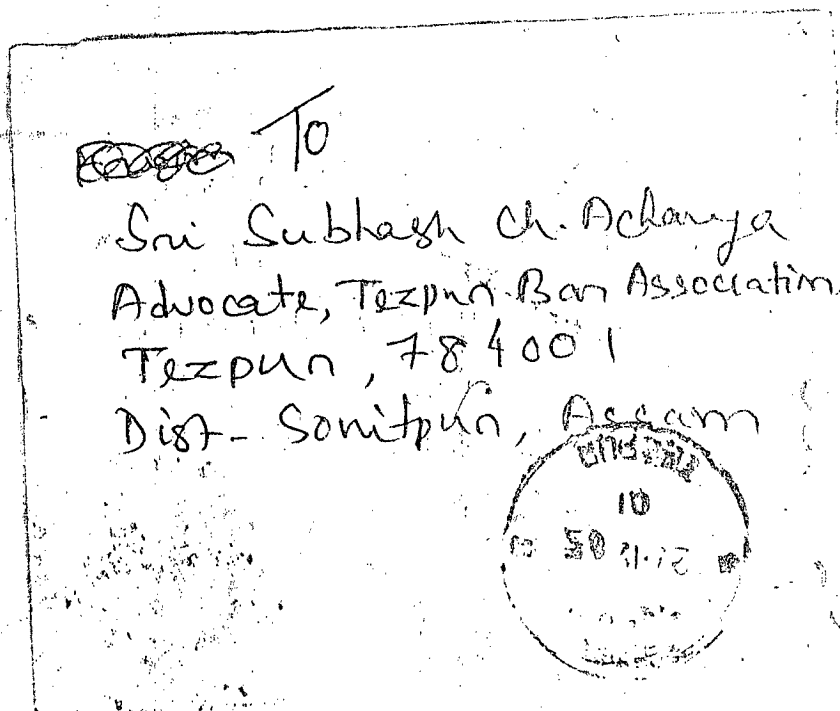 To
Sri Subhash Ch. Acharya
Advocate, Tezpur Bar Association
Tezpur, 784001
Dist- Sonitpur, Assam
10